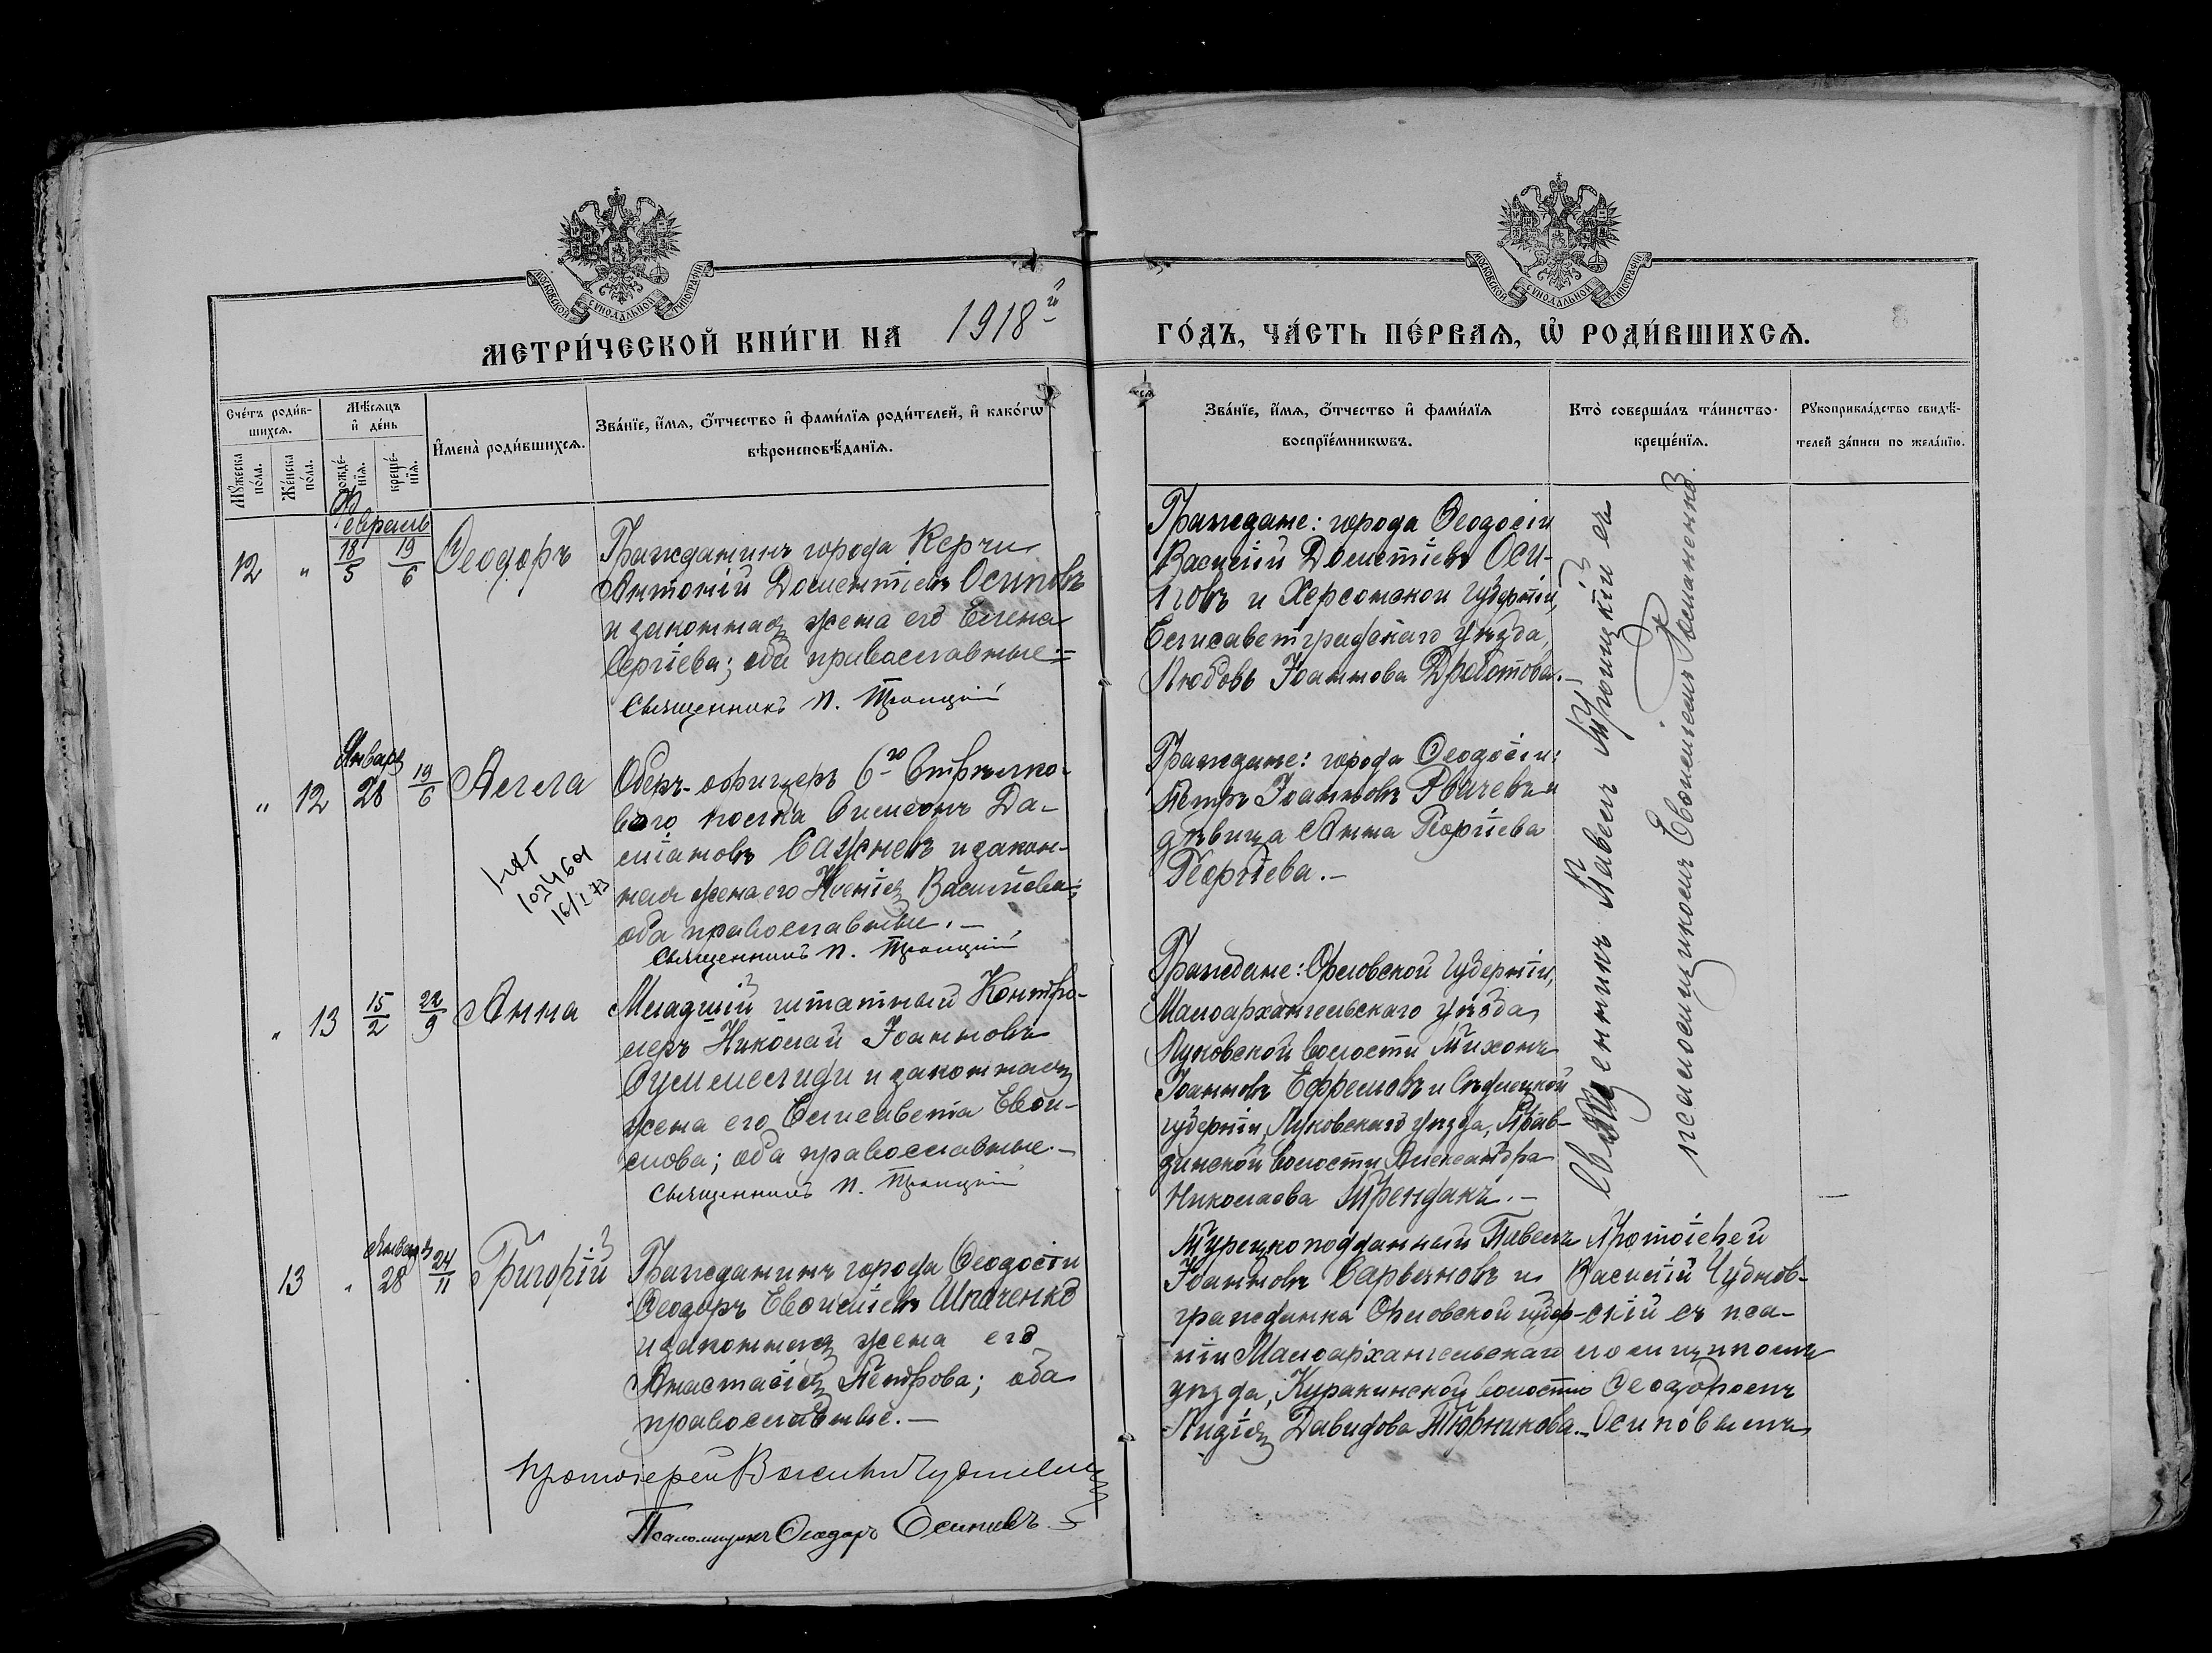 МОСКОВСКОЙ СѴНОДАЛЬНОЙ ТИПОГРАФІИ
МОСКОВСКОЙ СѴНОДАЛЬНОЙ ТИПОГРАФІИ
МЕТРИ́ЧЕСКОЙ КНИ́ГИ НА 1918й
ГО́ДЪ, ЧА́СТЬ ПЕ́РВАЯ, Ѡ РОДИ́ВШИХСЯ.
Сче́тъ роди́в-
шихся.
Мꙋ́жеска
по́ла.
Же́нска
по́ла.
Мѣ́сяцъ
и де́нь
рожде́-
нїя.
креще́-
нїя.
Имена̀ роди́вшихся.
Зва́нїе, и́мя, о́тчество и фами́лїя роди́телей, и како́гѡ
вѣроисповѣ́данїя.
Зва́нїе, и́мя, о́тчество и фами́лїя
воспрїе́мникѡвъ.
Кто̀ соверша́лъ та́инство
креще́нїя.
Рꙋкоприкла́дство свидѣ́-
телей за́писи по жела́нїю.
Февраль
12 " 18/5 19/6 Ѳеодоръ
Гражданинъ города Керчи
Антоній Дометіевъ Осиповъ
и законная жена его Елена
Сергіева; оба православные.=
Священникъ П. Троицкій
Граждане: города Ѳеодосіи
Василій Дометіевъ Оси-
повъ и Херсонской губерніи,
Елисаветградскаго уѣзда,
Любовь Іоаннова Дработова.-
Январь
" 12 28 19/6 Аелла
103461
16/I 73
Оберъ-офицеръ 6го Стрѣлко-
ваго полка Симеонъ Да-
міановъ Сажневъ и закон-
ная жена его Ксенія Васильева;
оба православные.-
Священникъ П. Троицкій
Граждане: города Ѳеодосіи:
Петръ Іоанновъ Рвачевъ и
дѣвица Анна Георгіева
Георгіева.-
" 13 15/2 22/9 Анна
Младшій штатный Контро-
леръ Николай Іоанновъ
и законная
жена его Елисавета Евѳи-
мова; оба православные.-
Священникъ П. Троицкій
Граждане: Орловской губерніи,
Малоархангельскаго уѣзда,
Луковской волости Тихонъ
Іоанновъ Ефремовъ и Сѣдлецкой
губерніи, Луковскаго уѣзда, Прав-
динской волости Александра
Николаова Трендакъ.-
Священникъ Павелъ Троицкій съ
псаломщикомъ Евѳиміемъ
Январь
13 " 28 24/11 Григорій
Гражданинъ города Ѳеодосіи
Ѳеодоръ Евѳиміевъ Шпаченко
и законная жена его
Анастасія Петрова; оба
православные.-
Турецкоподданный Павелъ
Іоанновъ Сарьяновъ и
гражданка Орловской губер-
ніи Малоархангельскаго
уѣзда, Куракинской волости
Лидія Давидова Тюрникова.-
Протоіерей
Василій Чуднов-
скій съ пса-
ломщикомъ
Ѳеодоромъ
Осиповымъ
Протоіерей Василій Чудновскій
Псаломщикъ Ѳеодоръ Осиповъ